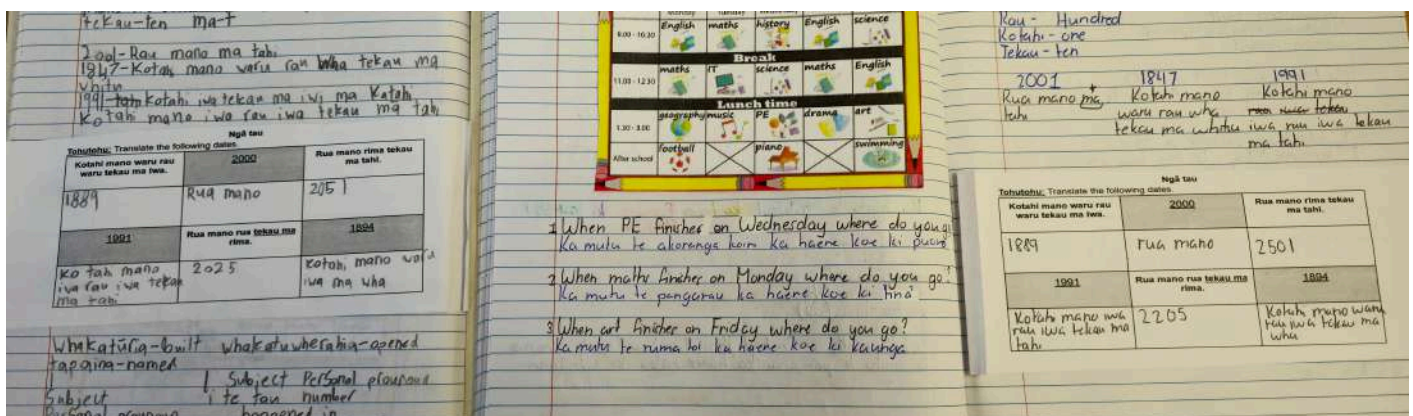 tekau-ten ma-t
2001-Rau mano ma tahi
1847-Kotahi mano waru rau wha tekau ma
whitu
1991-Kotahi iwa tekau ma iwi ma Katahi
Kotahi mano iwa rau iwa tekau ma tahi
Ngā tau
Tohutohu: Translate the following dates.
Kotahi mano waru rau
waru tekau ma iwa.
2000
Rua mano rima tekau
ma tahi.
1889
Rua mano
2051
1991
Rua mano rua tekau ma
rima.
1894
Ko tahi mano
iwa rau iwa tekau
ma tahi
2025
Kotahi mano waru
iwa ma wha
Whakatūria-built whakatuwherahia-opened
tapaina-named
Subject Personal pronoun
Subject i te tau number
Personal pronoun happened in
English maths history English science
9.00 - 10.30
Break
11.00 - 12.30
maths IT science maths English
Lunch time
1.30 - 3.00
geography music PE drama art
After school
football piano swimming
1 When PE finishes on Wednesday where do you go
Ka mutu te akoranga koiri ka haere koe ki puoro
2 When maths finishes on Monday where do you go?
Ka mutu te pangarau ka haere koe ki hina
3 When art finishes on Friday where do you go?
Ka mutu te ruma toi ka haere koe ki kauhga
Rau - Hundred
Kotahi - one
Tekau - ten
2001 1847 1991
Rua mano ma
tahi
Kotahi mano
waru rau wha
tekau ma whitu
Kotahi mano
iwa rau iwa tekau
ma tahi
Ngā tau
Tohutohu: Translate the following dates.
Kotahi mano waru rau
waru tekau ma iwa.
2000
Rua mano rima tekau
ma tahi.
1889
rua mano
2501
1991
Rua mano rua tekau ma
rima.
1894
Kotahi mano iwa
rau iwa tekau ma
tahi
2205
Kotahi mano waru
rau iwa tekau ma
wha